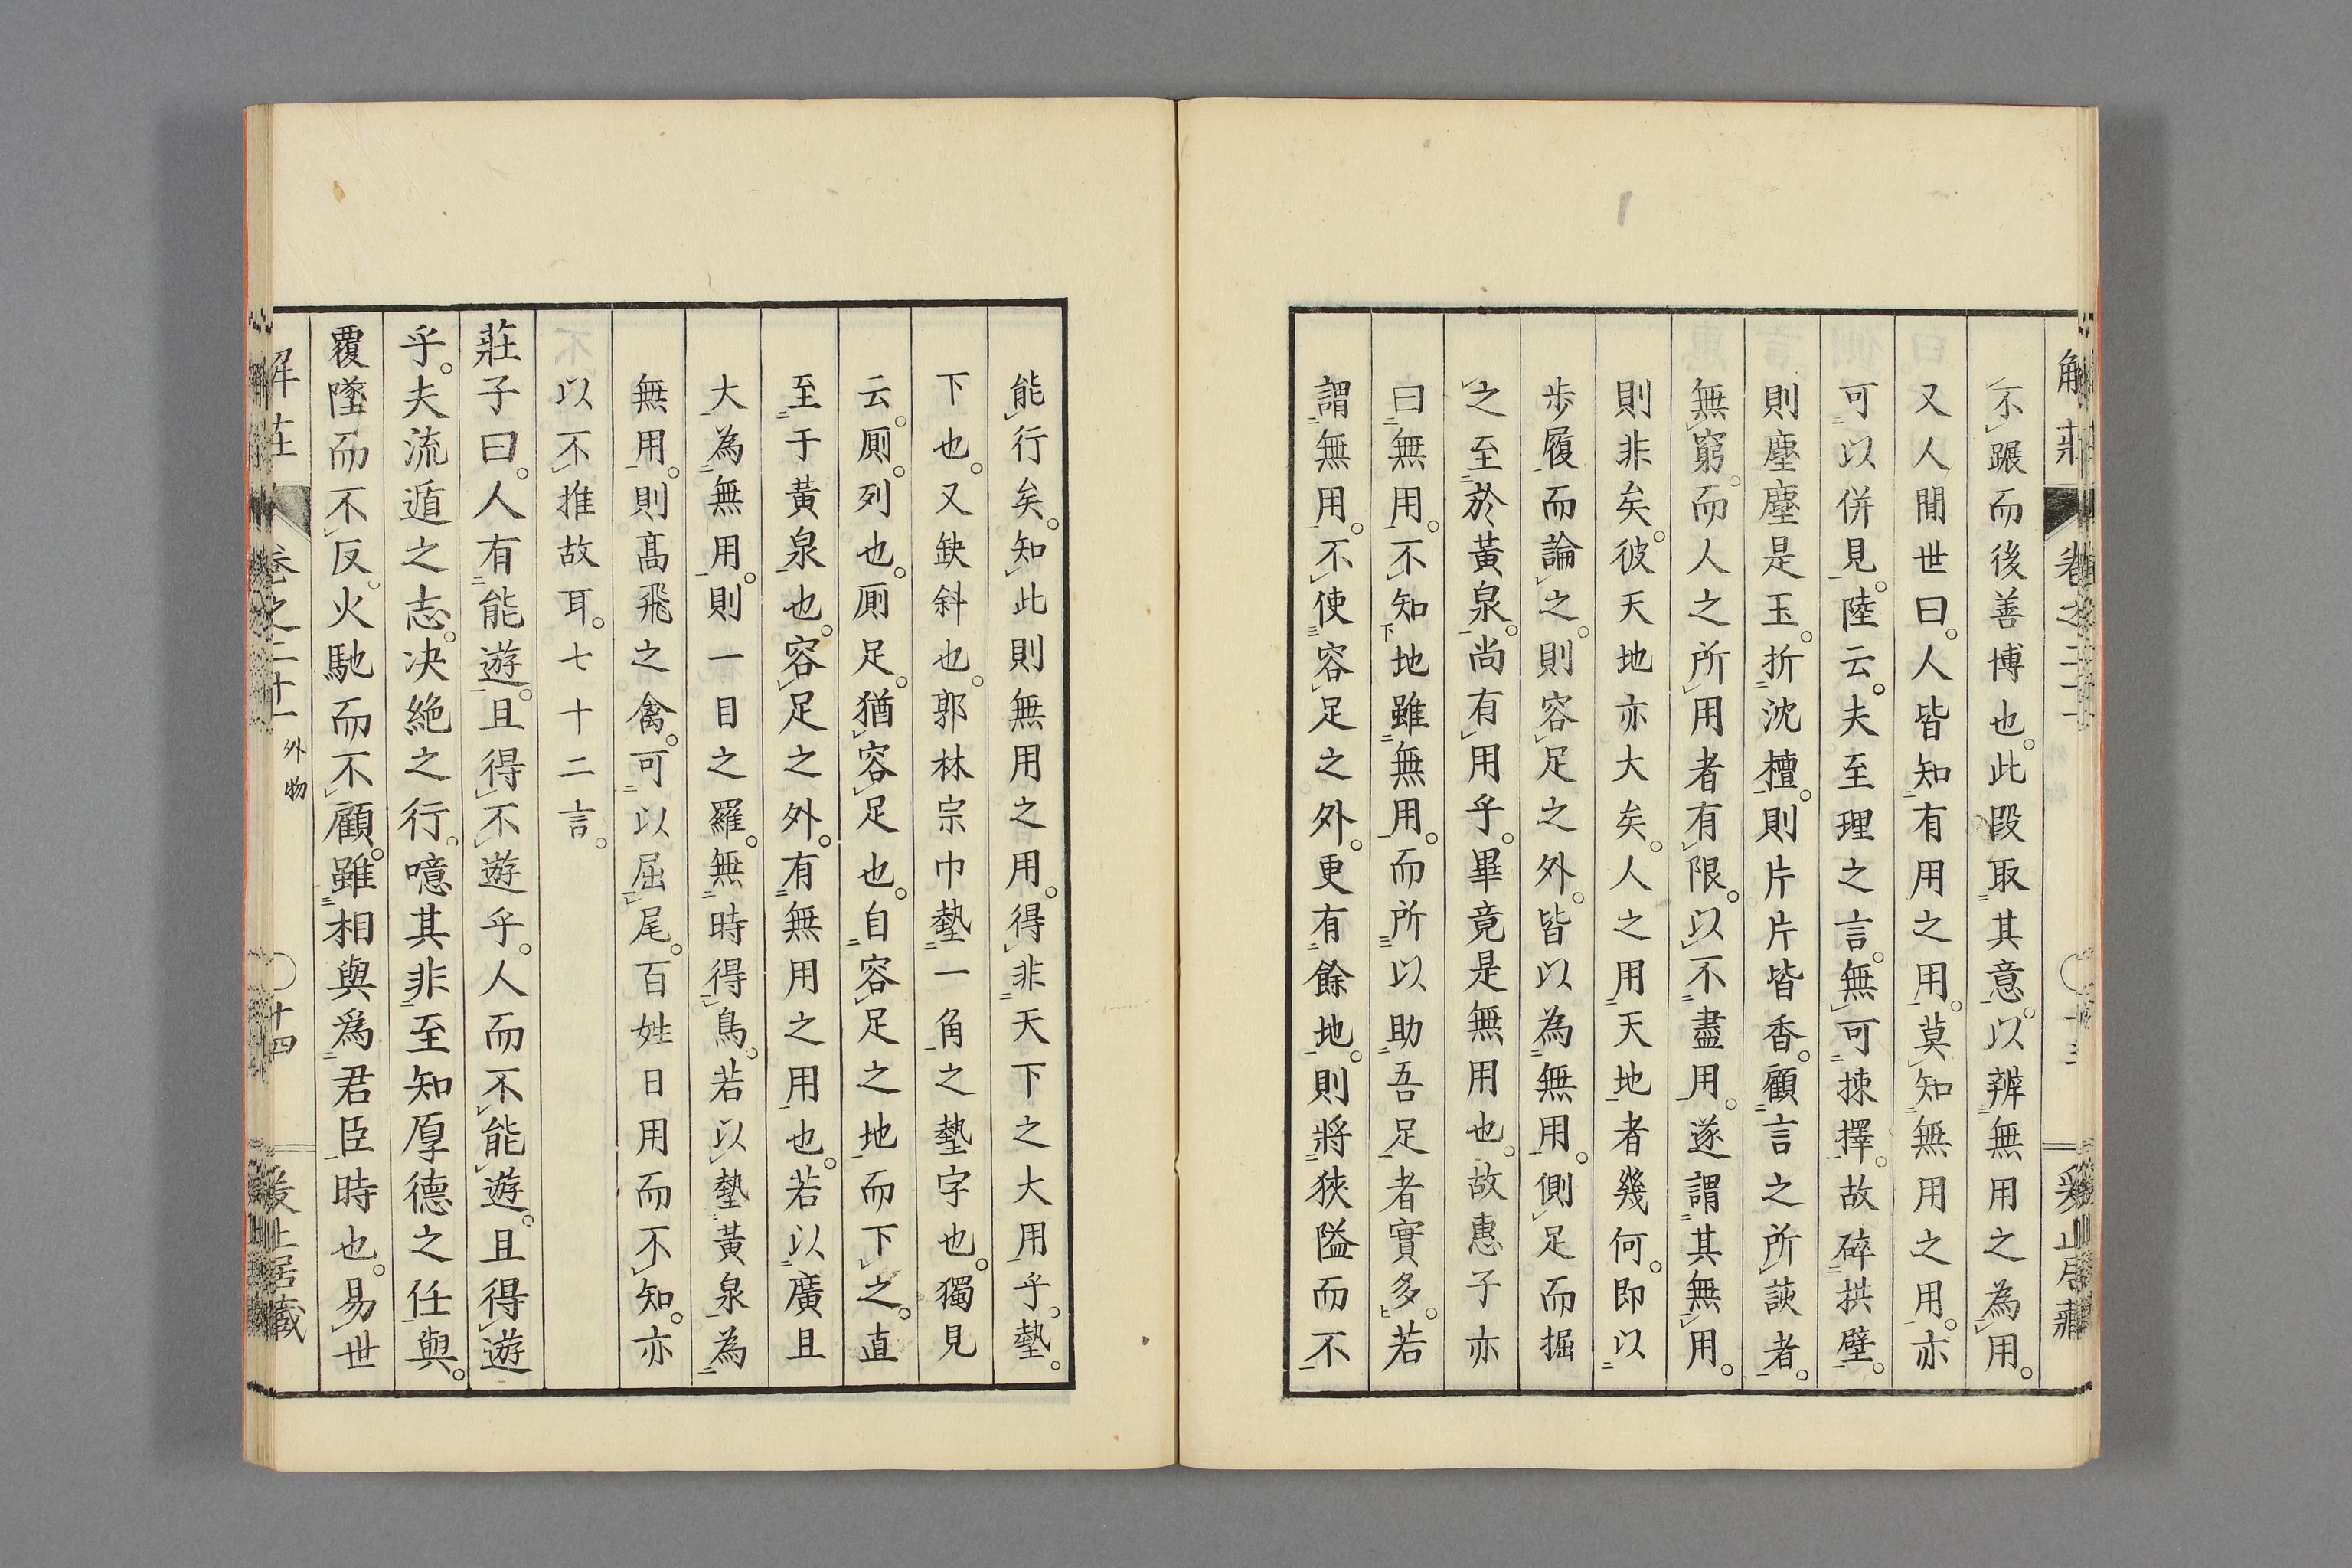 不蹍而後善博也。此段取其意。以辨無用之為用。
又人間世曰。人皆知有用之用。莫知無用之用。亦
可以併見。陸云。夫至理之言。無可揀擇。故碎拱璧。
則塵塵是玉。折沈檀。則片片皆香。顧言之所談者。
無窮。而人之所用者有限。以不盡用。遂謂其無用。
則非矣。彼天地亦大矣。人之用天地者幾何。即以
步履而論之。則容足之外。皆以為無用。側足而掘
之至於黃泉。尚有用乎。畢竟是無用也。故惠子亦
曰無用。不知地雖無用。而所以助吾足者實多。若
謂無用。不使容足之外。更有餘地。則將狹隘而不
能行矣。知此則無用之用。得非天下之大用乎。墊。
下也。又缺斜也。郭林宗巾墊一角之墊字也。獨見
云。厠。列也。厠足。猶容足也。自容足之地而下之。直
至于黃泉也。容足之外。有無用之用也。若以廣且
大為無用。則一目之羅。無時得鳥。若以墊黃泉為
無用。則高飛之禽。可以屈尾。百姓日用而不知。亦
以不推故耳。七十二言。
莊子曰。人有能遊。且得不遊乎。人而不能遊。且得遊
乎。夫流遁之志。決絕之行。噫其非至知厚德之任與。
覆墜而不反。火馳而不顧。雖相與爲君臣時也。易世
解莊 卷之二十一 外物 〇十四